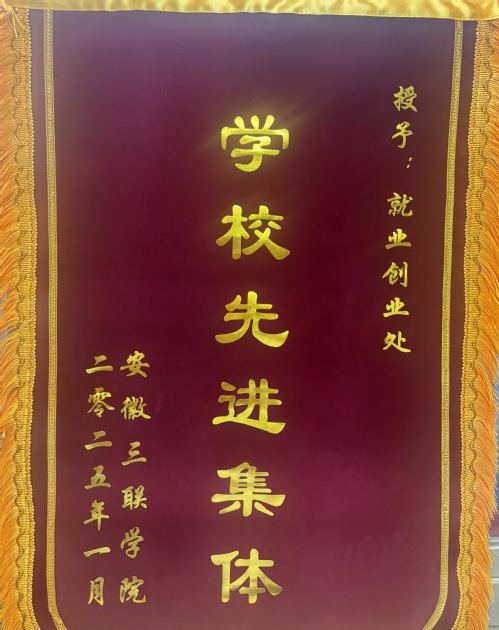 授予：就业创业处
学校先进集体
安徽三联学院
二零二五年一月